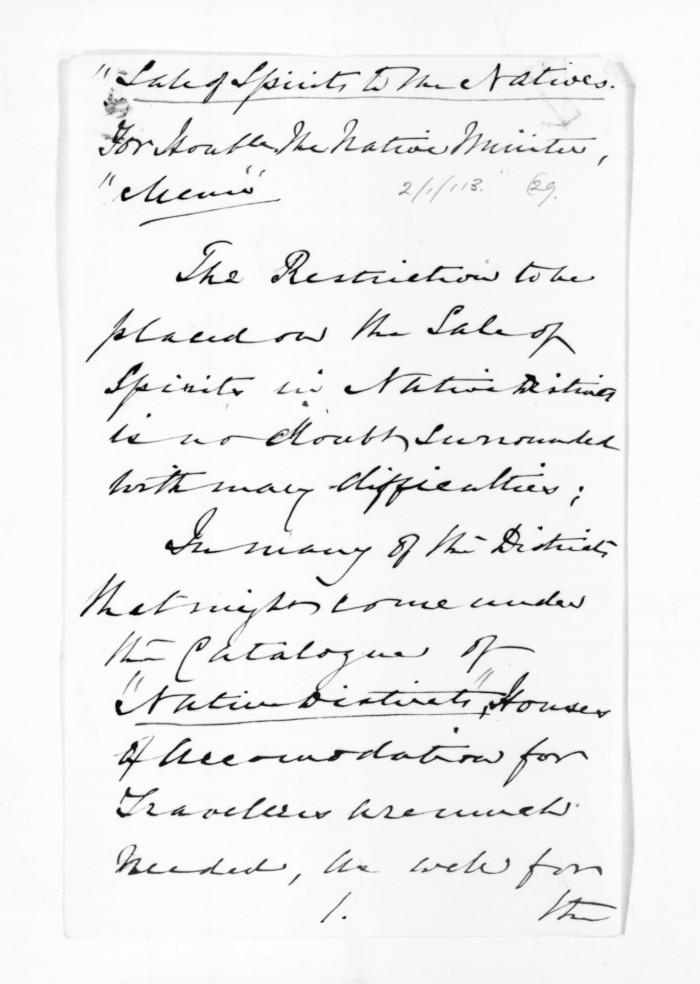 "Sale of Spirits to the Natives.
For Honble. The Native Minister,
"Memo"
2/1/113. 29.
The Restriction to be
placed on the Sale of
Spirits in Native Districts
is no doubt surrounded
with many difficulties;
In many of the Districts
that might come under
the Catalogue of
"Native Districts", Houses
of Accomodation for
Travellers are much
needed, as well for
1. the